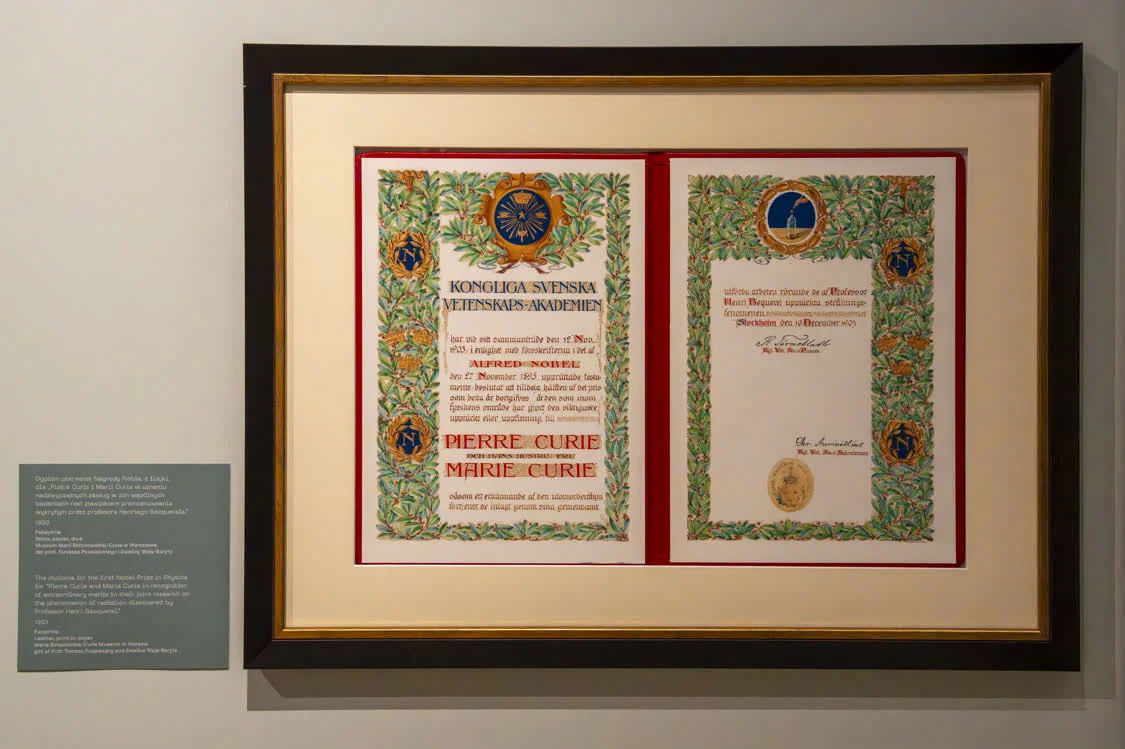 Dyplom pierwszej Nagrody Nobla, z fizyki,
dla „Piotra Curie i Marii Curie w uznaniu
nadzwyczajnych zasług w ich wspólnych
badaniach nad zjawiskiem promieniowania
wykrytym przez profesora Henriego Becquerela.”
1903
Faksymile
Skóra, papier, druk
Muzeum Marii Skłodowskiej-Curie w Warszawie,
dar prof. Tomasza Pospiesznego i Eweliny Wajs-Baryły
The diploma for the first Nobel Prize in Physics
for "Pierre Curie and Marie Curie in recognition
of extraordinary merits in their joint research on
the phenomenon of radiation discovered by
Professor Henri Becquerel."
1903
Facsimile
Leather, print on paper
Maria Skłodowska-Curie Museum in Warsaw,
gift of Prof. Tomasz Pospieszny and Ewelina Wajs-Baryła
N
N
KONGLIGA SVENSKA
VETENSKAPS-AKADEMIEN
har vid sitt sammanträde den 12 Nov.
1903 i enlighet med föreskrifterna i det af
ALFRED NOBEL
den 27 November 1895 upprättade testa-
mente beslutat att tilldela hälften af det pris
som detta år bortgifves åt den som inom
fysikens område har gjort den viktigaste
upptäckt eller uppfinning till
PIERRE CURIE
OCH HANS HUSTRU FRU
MARIE CURIE
såsom ett erkännande af den utomordentliga
förtjenst de inlagt genom sina gemensamt
N
N
utförda arbeten rörande de af Professor
Henri Bequerel upptäckta strålnings-
fenomenen
Stockholm den 10 December 1903
Kgl. Vet. Akad. Præses
Chr. Aurivillius
Kgl. Vet. Akad. Sekreterare